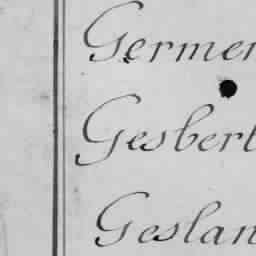 Germer
Gesbert
Geslan